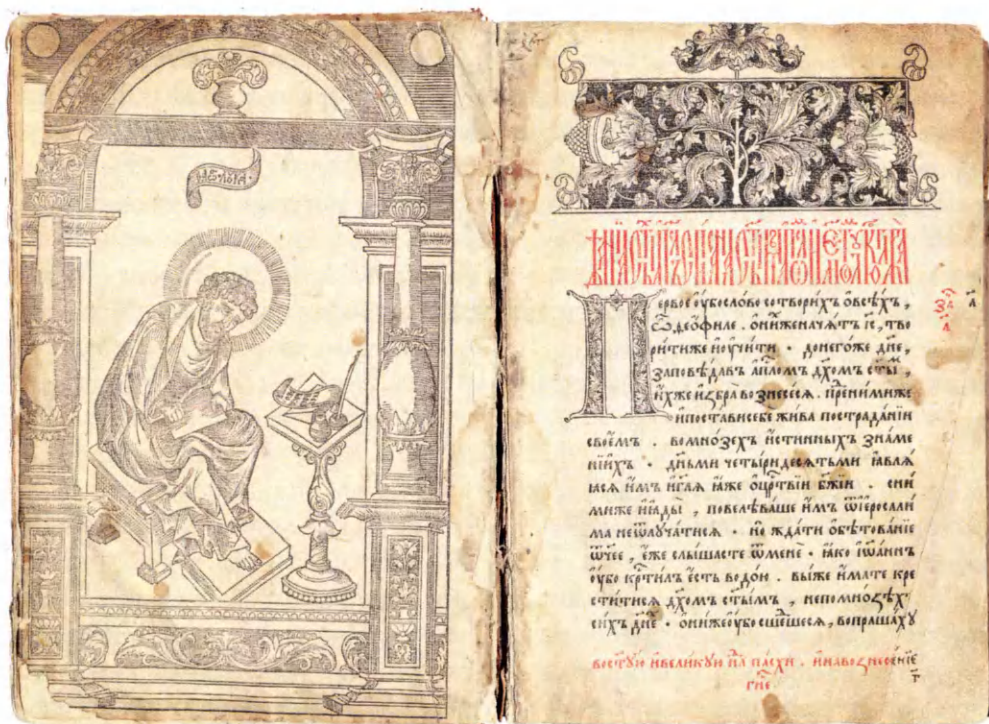 Первое оу҆бо слово сотворихъ ѡ҆всѣхъ,
ѽ деѻ҆филе. ѻ҆ниже начѧтъ і҆с, тво
рити же и҆ оу҆чити. до негоже дн҃е,
заповѣдавъ а҆пⷭ҇ломъ дх҃омъ ст҃ы,
и҆хже и҆збра вознесесѧ. пренимиже
и҆ постави себе жива по страданїи
свое҆мъ. во мнозех и҆стинныхъ знаме
нїихъ. дн҃ьми четыридесѧтьми ꙗ҆влѧ
ꙗсѧ и҆мъ и҆ гл҃ѧ ꙗ҆же ѡ҆ црⷭ҇твїи бж҃їи. сни
миже и҆ ꙗ҆ды, повелѣваше и҆мъ ѿ і҆еросали
ма не ѿлꙋчатисѧ. но ждати ѻ҆бѣтованїе
ѿчее, е҆же слышасте ѿ мене. ꙗ҆ко і҆ѡ҆аннъ
оу҆бо крⷭ҇тилъ е҆сть водою. выже и҆мате кре
ститисѧ дх҃омъ ст҃ымъ, не по мнозѣхъ
сихъ дн҃е. ѻ҆ниже оу҆бо сшешесѧ, вопрашахꙋ
во ст҃ꙋю и҆ великꙋю нлⷧ҇ пасхи. и҆ на вознесенїе
гн҃е